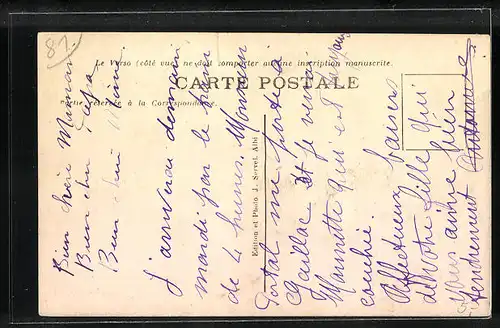 81
Le Verso (côté vue) ne doit comporter aucune inscription manuscrite.
CARTE POSTALE
Partie réservée à la Correspondance.
Edition et Photo J. Servet, Albi
Bien chère Maman
Bien cher Papa
Bien chère
J'arriverai demain
mardi par le train
de 4 heures. Monsieur
Portal me porte à
Gaillac et je verrai
Marinette qui est
couchée.
Affectueux baisers
de votre fille qui
vous aime bien
tendrement